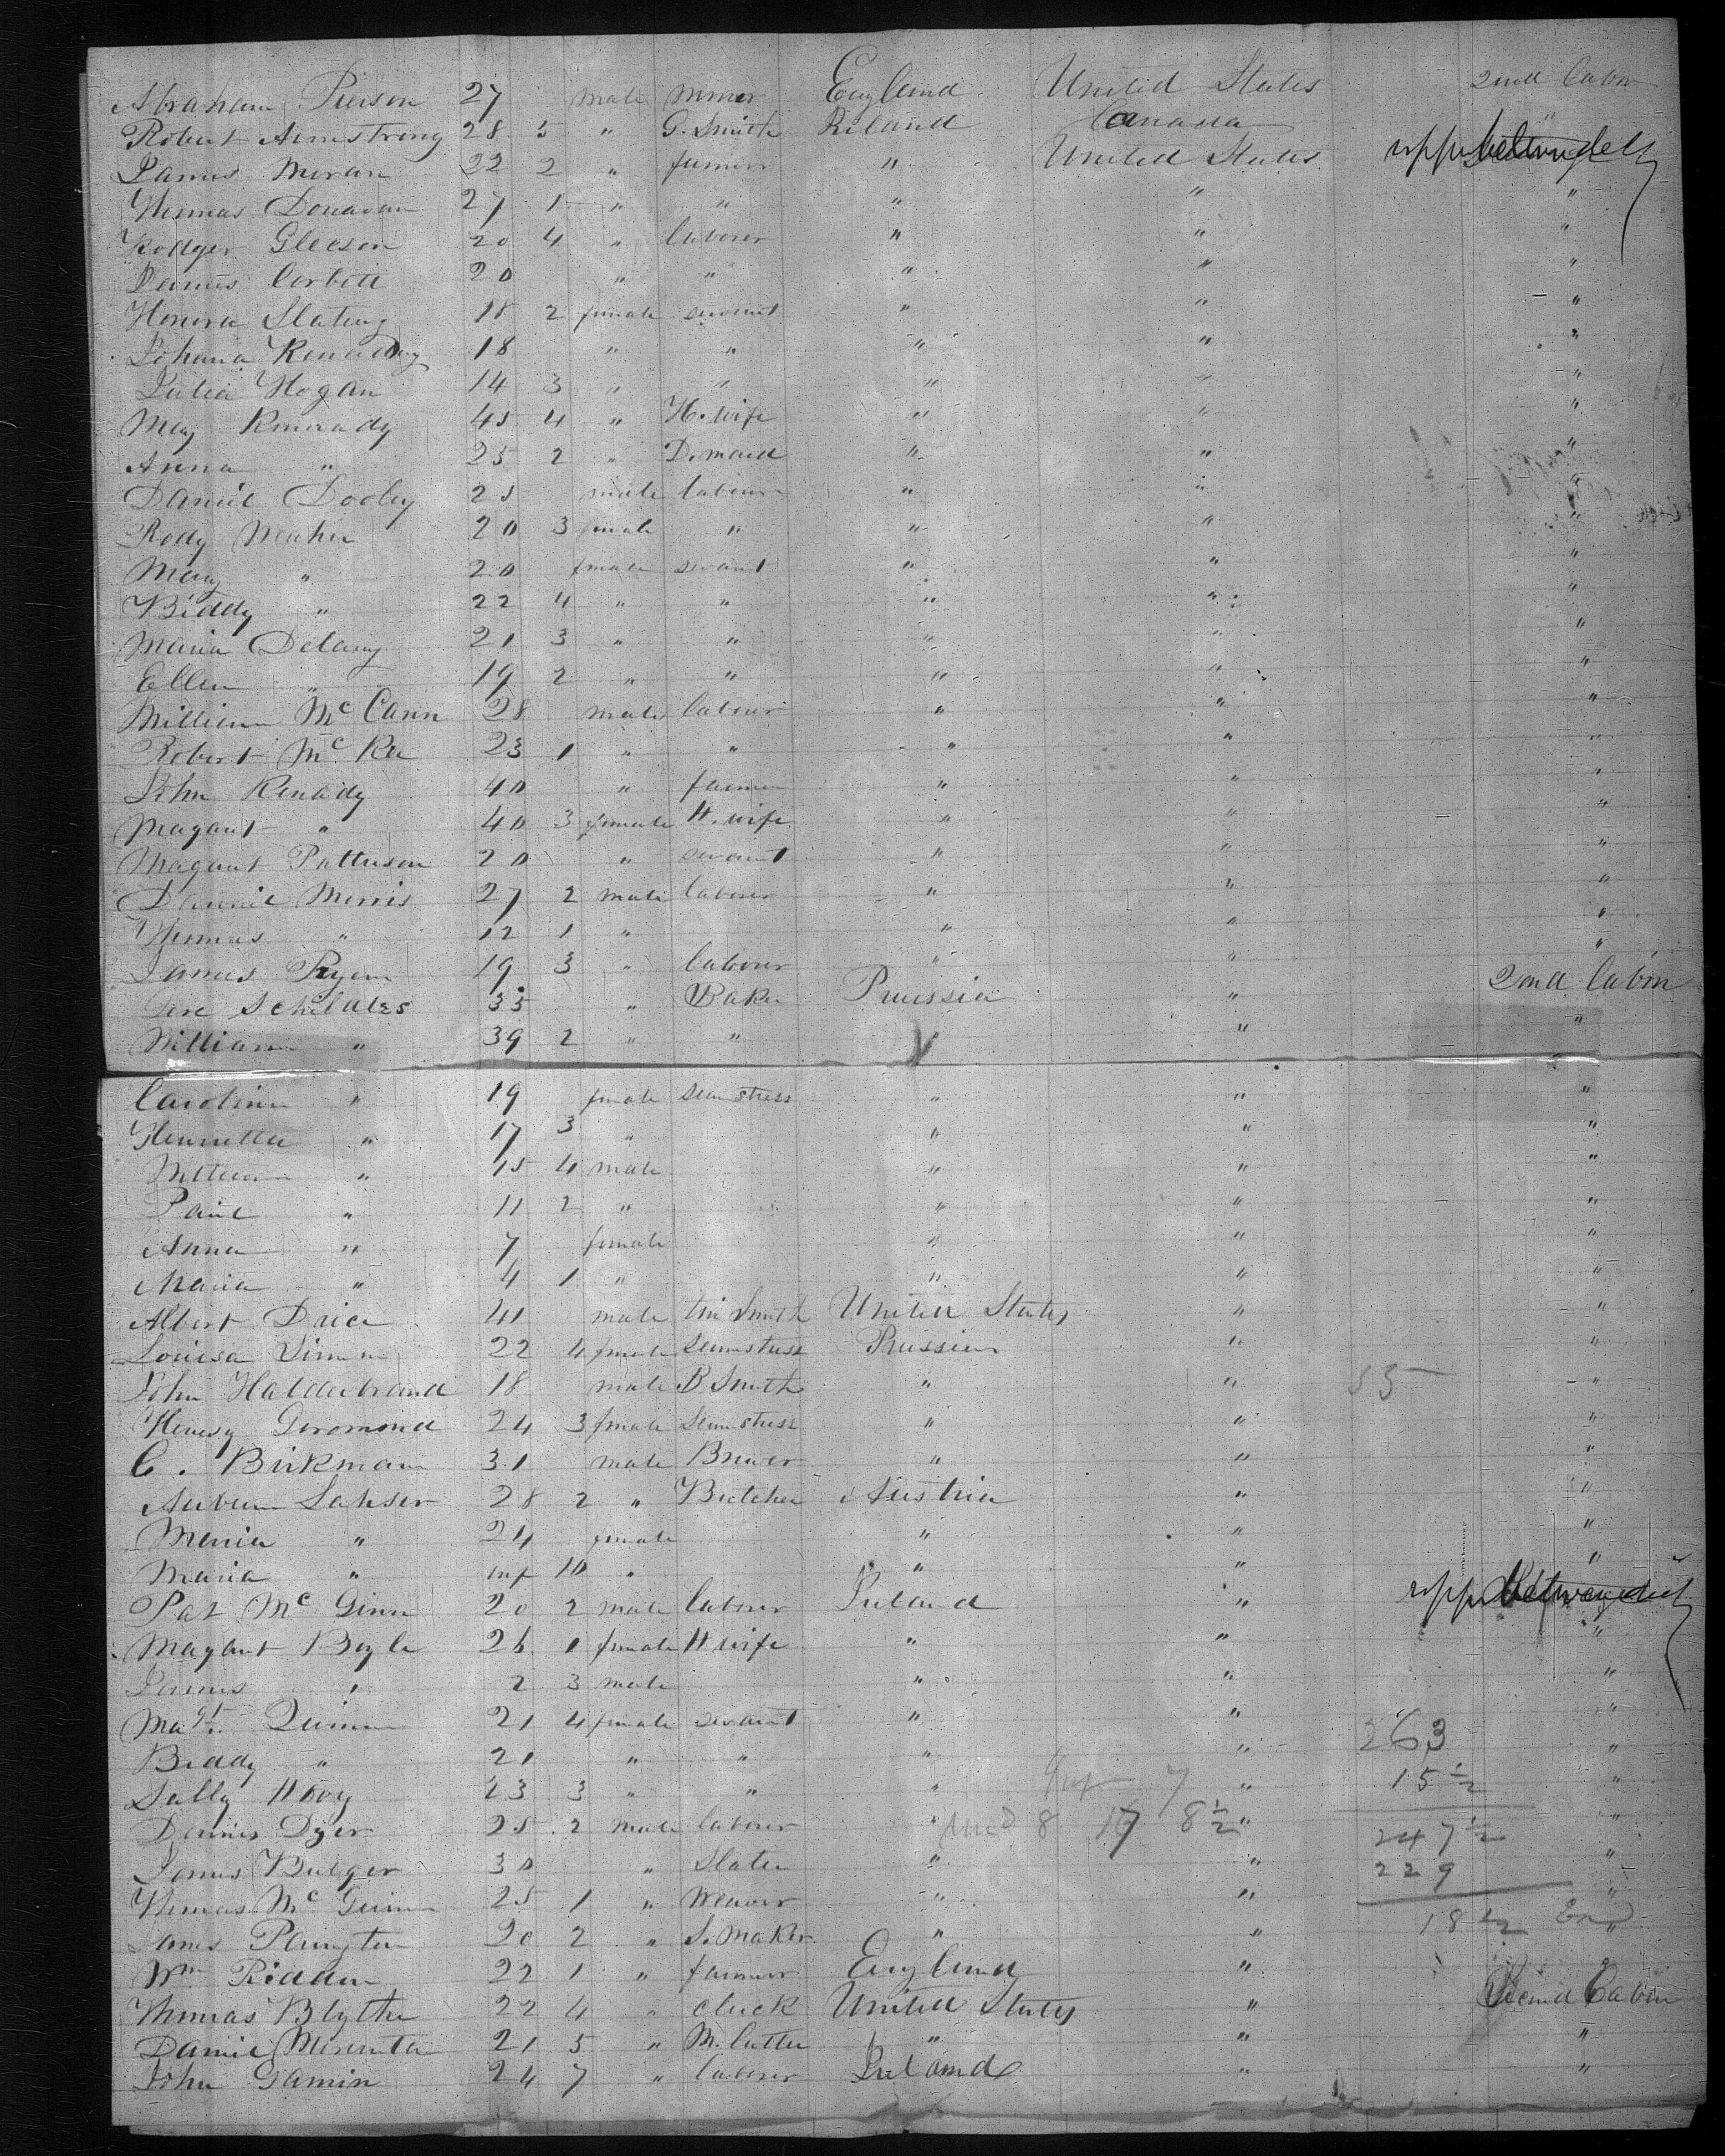 Abraham Pierson 27 male miner England United States 2nd Cabin
Robert Armstrong 28 5 " G. Smith Ireland Canada "
James Moran 22 2 " farmer " United States upper between decks
Thomas Donavan 27 1 " " " " "
Rodger Gleeson 20 4 " laborer " " "
James Corbett 20 " " " " "
Honora Slatery 18 2 female servant " " "
Johana Kenaday 18 " " " " "
Julia Hogan 14 3 " " " " "
Mary Kenady 45 4 " H. wife " " "
Anna " 25 2 " D. maid " " "
Daniel Dooley 25 male labour " " "
Rody Maher 20 3 female " " " "
Mary " 20 female servant " " "
Biddy " 22 4 " " " " "
Maria Delany 21 3 " " " " "
Ellen " 19 2 " " " " "
William Mc Cann 28 male labourer " " "
Robert Mc Kee 23 1 " " " " "
John Kenady 40 " farmer " " "
Magaret " 40 3 female H. wife " " "
Magaret Patterson 20 " servant " " "
Daniel Morris 27 2 male laborer " " "
Thomas " 12 1 " " " "
James Ryan 19 3 " labourer " " "
33 " Baker Prussia " 2nd Cabin
William " 39 2 " " " "
Caroline " 19 female seamstress " " "
Henrietta " 17 3 " " " "
" 15 4 male " " "
Paul " 11 2 " " " "
Anna " 7 female " " "
Maria " 4 1 " " " "
Albert Price 41 male tin Smith United States " "
Louisa 22 4 female seamstress Prussia " "
John Halderbrand 18 male B Smith " " 55 "
24 3 female seamstress " " "
C. Birkman 31 male Brewer " " "
28 2 " Butcher Austria " "
Maria " 24 female " " "
Maria " inf 10 " " " "
Pat Mc Ginn 20 2 male laborer Ireland " upper between decks
Magaret Boyle 26 1 female H wife " " "
James " 2 3 male " " "
Magt. Quinn 21 4 female servant " " 263 "
Biddy " 21 " " " " "
Sally Hoey 23 3 " " " 7 " 15½ "
Dennis Dyer 25 2 male laborer " 8 17 8½ " 247½ "
James Bulger 30 " Slater " " 229 "
Thomas Mc Guinn 25 1 " weaver " " "
James 20 2 " S. Maker " " 18½ "
Wm Riddan 22 1 " farmer England "
Thomas Blythe 22 4 " clerk United States " Second Cabin
Daniel 21 5 " M. Cutter " " "
John Gamin 24 7 " laborer Ireland " "